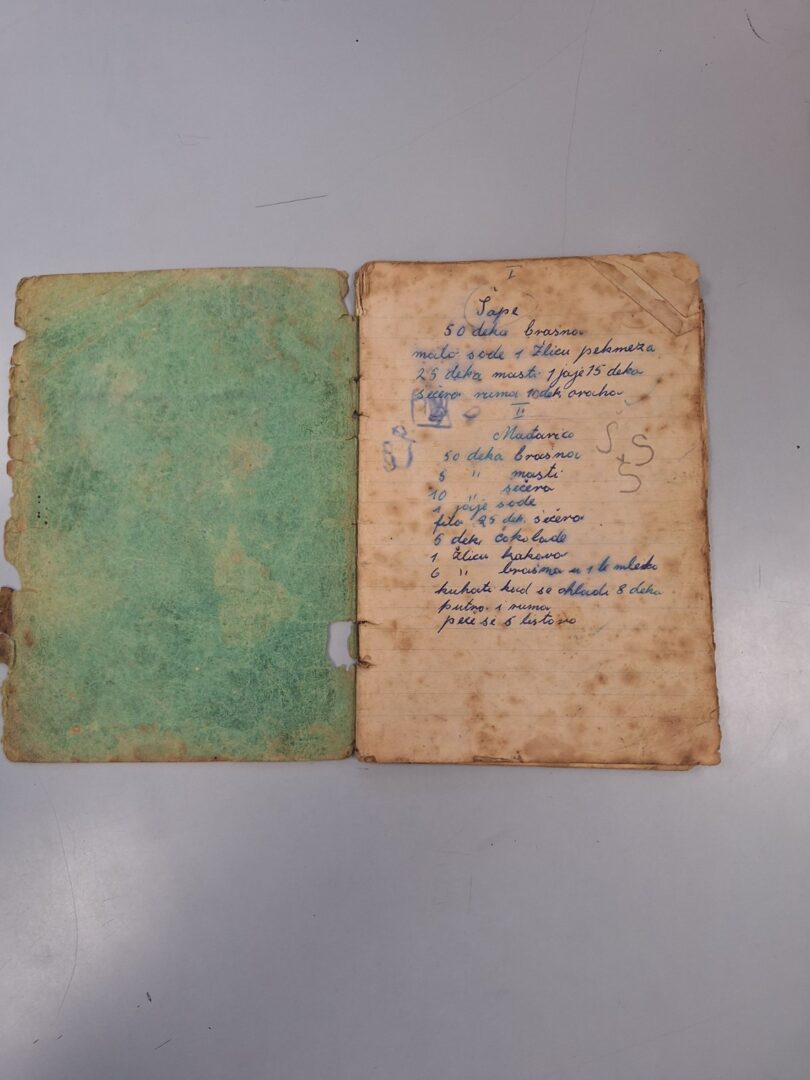 I
Šape
50 deka brašna
malo sode 1 žlicu pekmeza
25 deka masti 1 jaje 15 deka
šećera ruma 10 dek. oraha
II
Mađarica
50 deka brašna
5 " masti
10 " šećera
1 jaje sode
fila 25 dek. šećera
5 dek. čokolade
1 žlicu kakava
6 " brašna u 1 lt mleka
kuhati kad se ohladi 8 deka
putra i ruma
peče se 5 listova
S
S
S